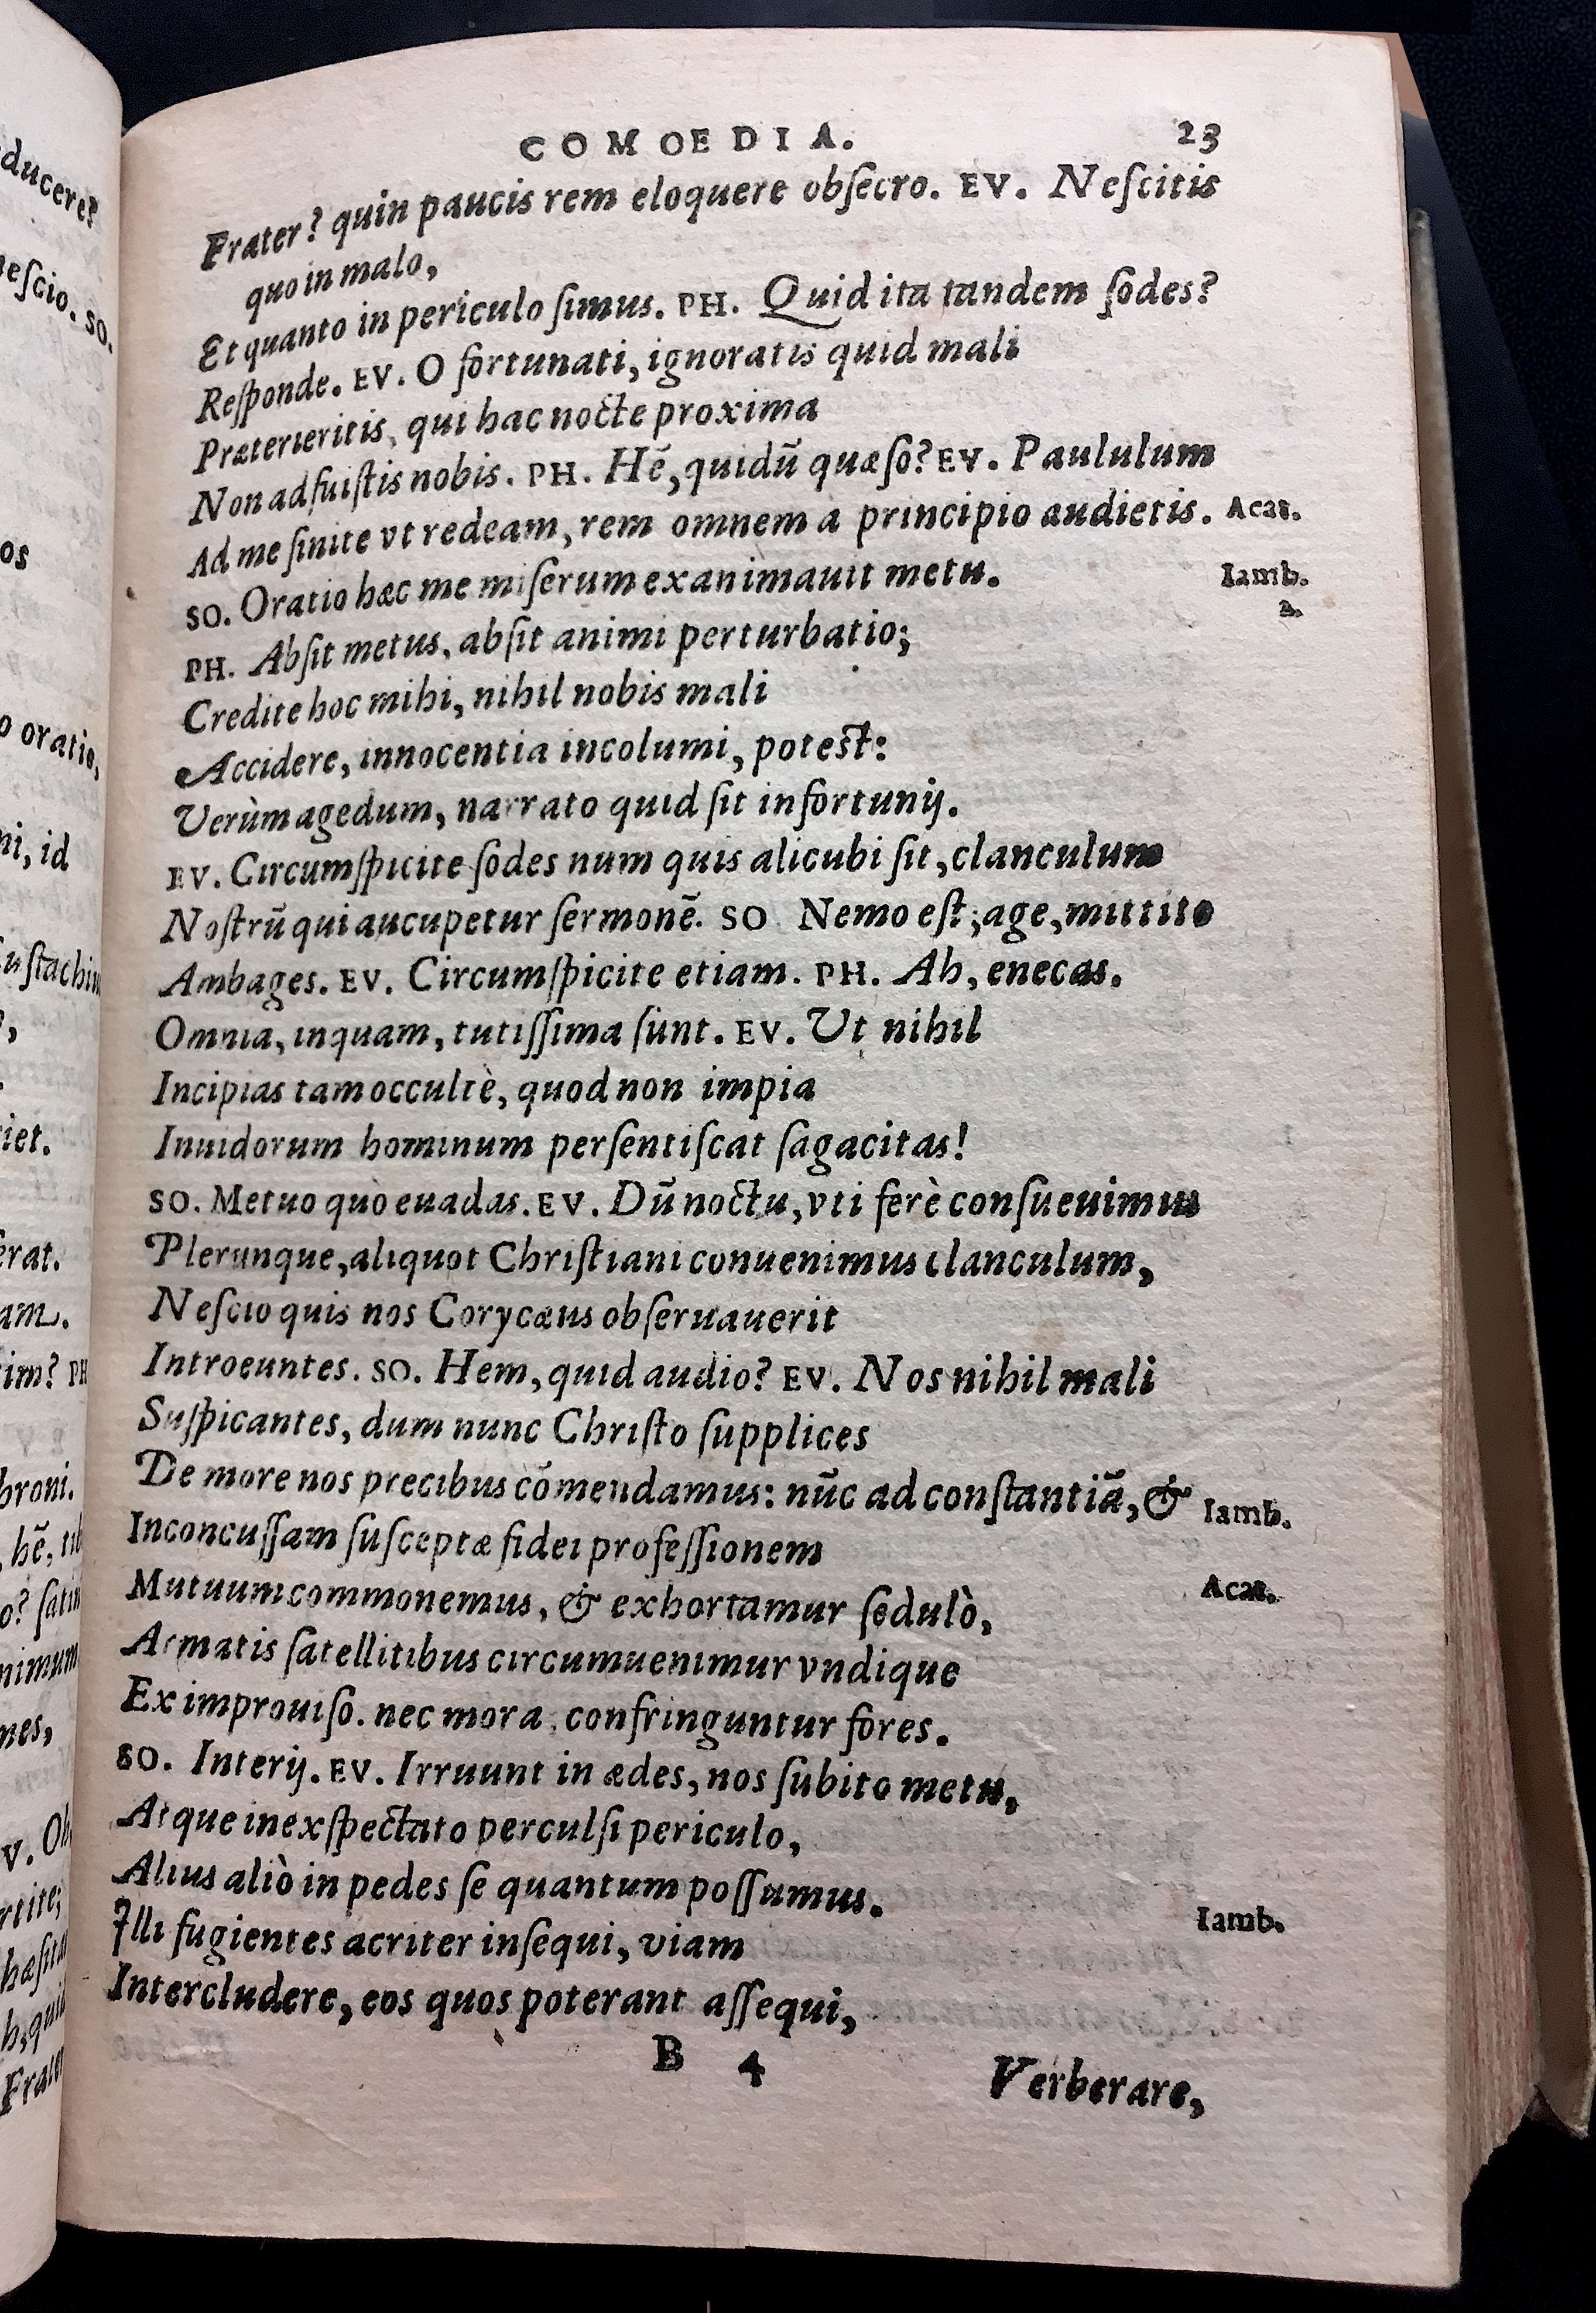 COMOEDIA. 23
Frater? quin paucis rem eloquere obſecro. EV. Neſcitis
quo in malo,
Et quanto in periculo ſimus. PH. Quid ita tandem ſodes?
Reſponde. EV. O fortunati, ignoratis quid mali
Præterieritis, qui hac nocte proxima
Non adfuiſtis nobis. PH. Hē, quidū quæſo? EV. Paululum
Ad me ſinite vt redeam, rem omnem à principio audietis. Acat.
SO. Oratio hæc me miſerum exanimauit metu. Iamb.
2.
PH. Abſit metus, abſit animi perturbatio;
Credite hoc mihi, nihil nobis mali
Accidere, innocentia incolumi, poteſt:
Verùm agedum, narrato quid ſit infortunij.
EV. Circumſpicite ſodes num quis alicubi ſit, clanculum
Noſtrū qui aucupetur ſermonē. SO Nemo eſt; age, mittito
Ambages. EV. Circumſpicite etiam. PH. Ah, enecas.
Omnia, inquam, tutiſſima ſunt. EV. Ut nihil
Incipias tam occultè, quod non impia
Inuidorum hominum perſentiſcat ſagacitas!
SO. Metuo quò euadas. EV. Dū noctu, vti ferè conſueuimus
Plerunque, aliquot Chriſtiani conuenimus clanculum,
Neſcio quis nos Corycæus obſeruauerit
Introeuntes. SO. Hem, quid audio? EV. Nos nihil mali
Suſpicantes, dum nunc Chriſto ſupplices
De more nos precibus cōmendamus: nūc ad conſtantiā, & Iamb.
Inconcuſſam ſuſceptæ fidei profeſſionem
Mutuum commonemus, & exhortamur ſedulò, Acat.
Armatis ſatellitibus circumuenimur vndique
Ex improuiſo. nec mora, confringuntur fores.
SO. Interij. EV. Irruunt in ædes, nos ſubito metu,
Atque inexſpectato perculſi periculo,
Alius aliò in pedes ſe quantum poſſumus.
Illi fugientes acriter inſequi, viam Iamb.
Intercludere, eos quos poterant aſſequi,
B 4 Verberare,